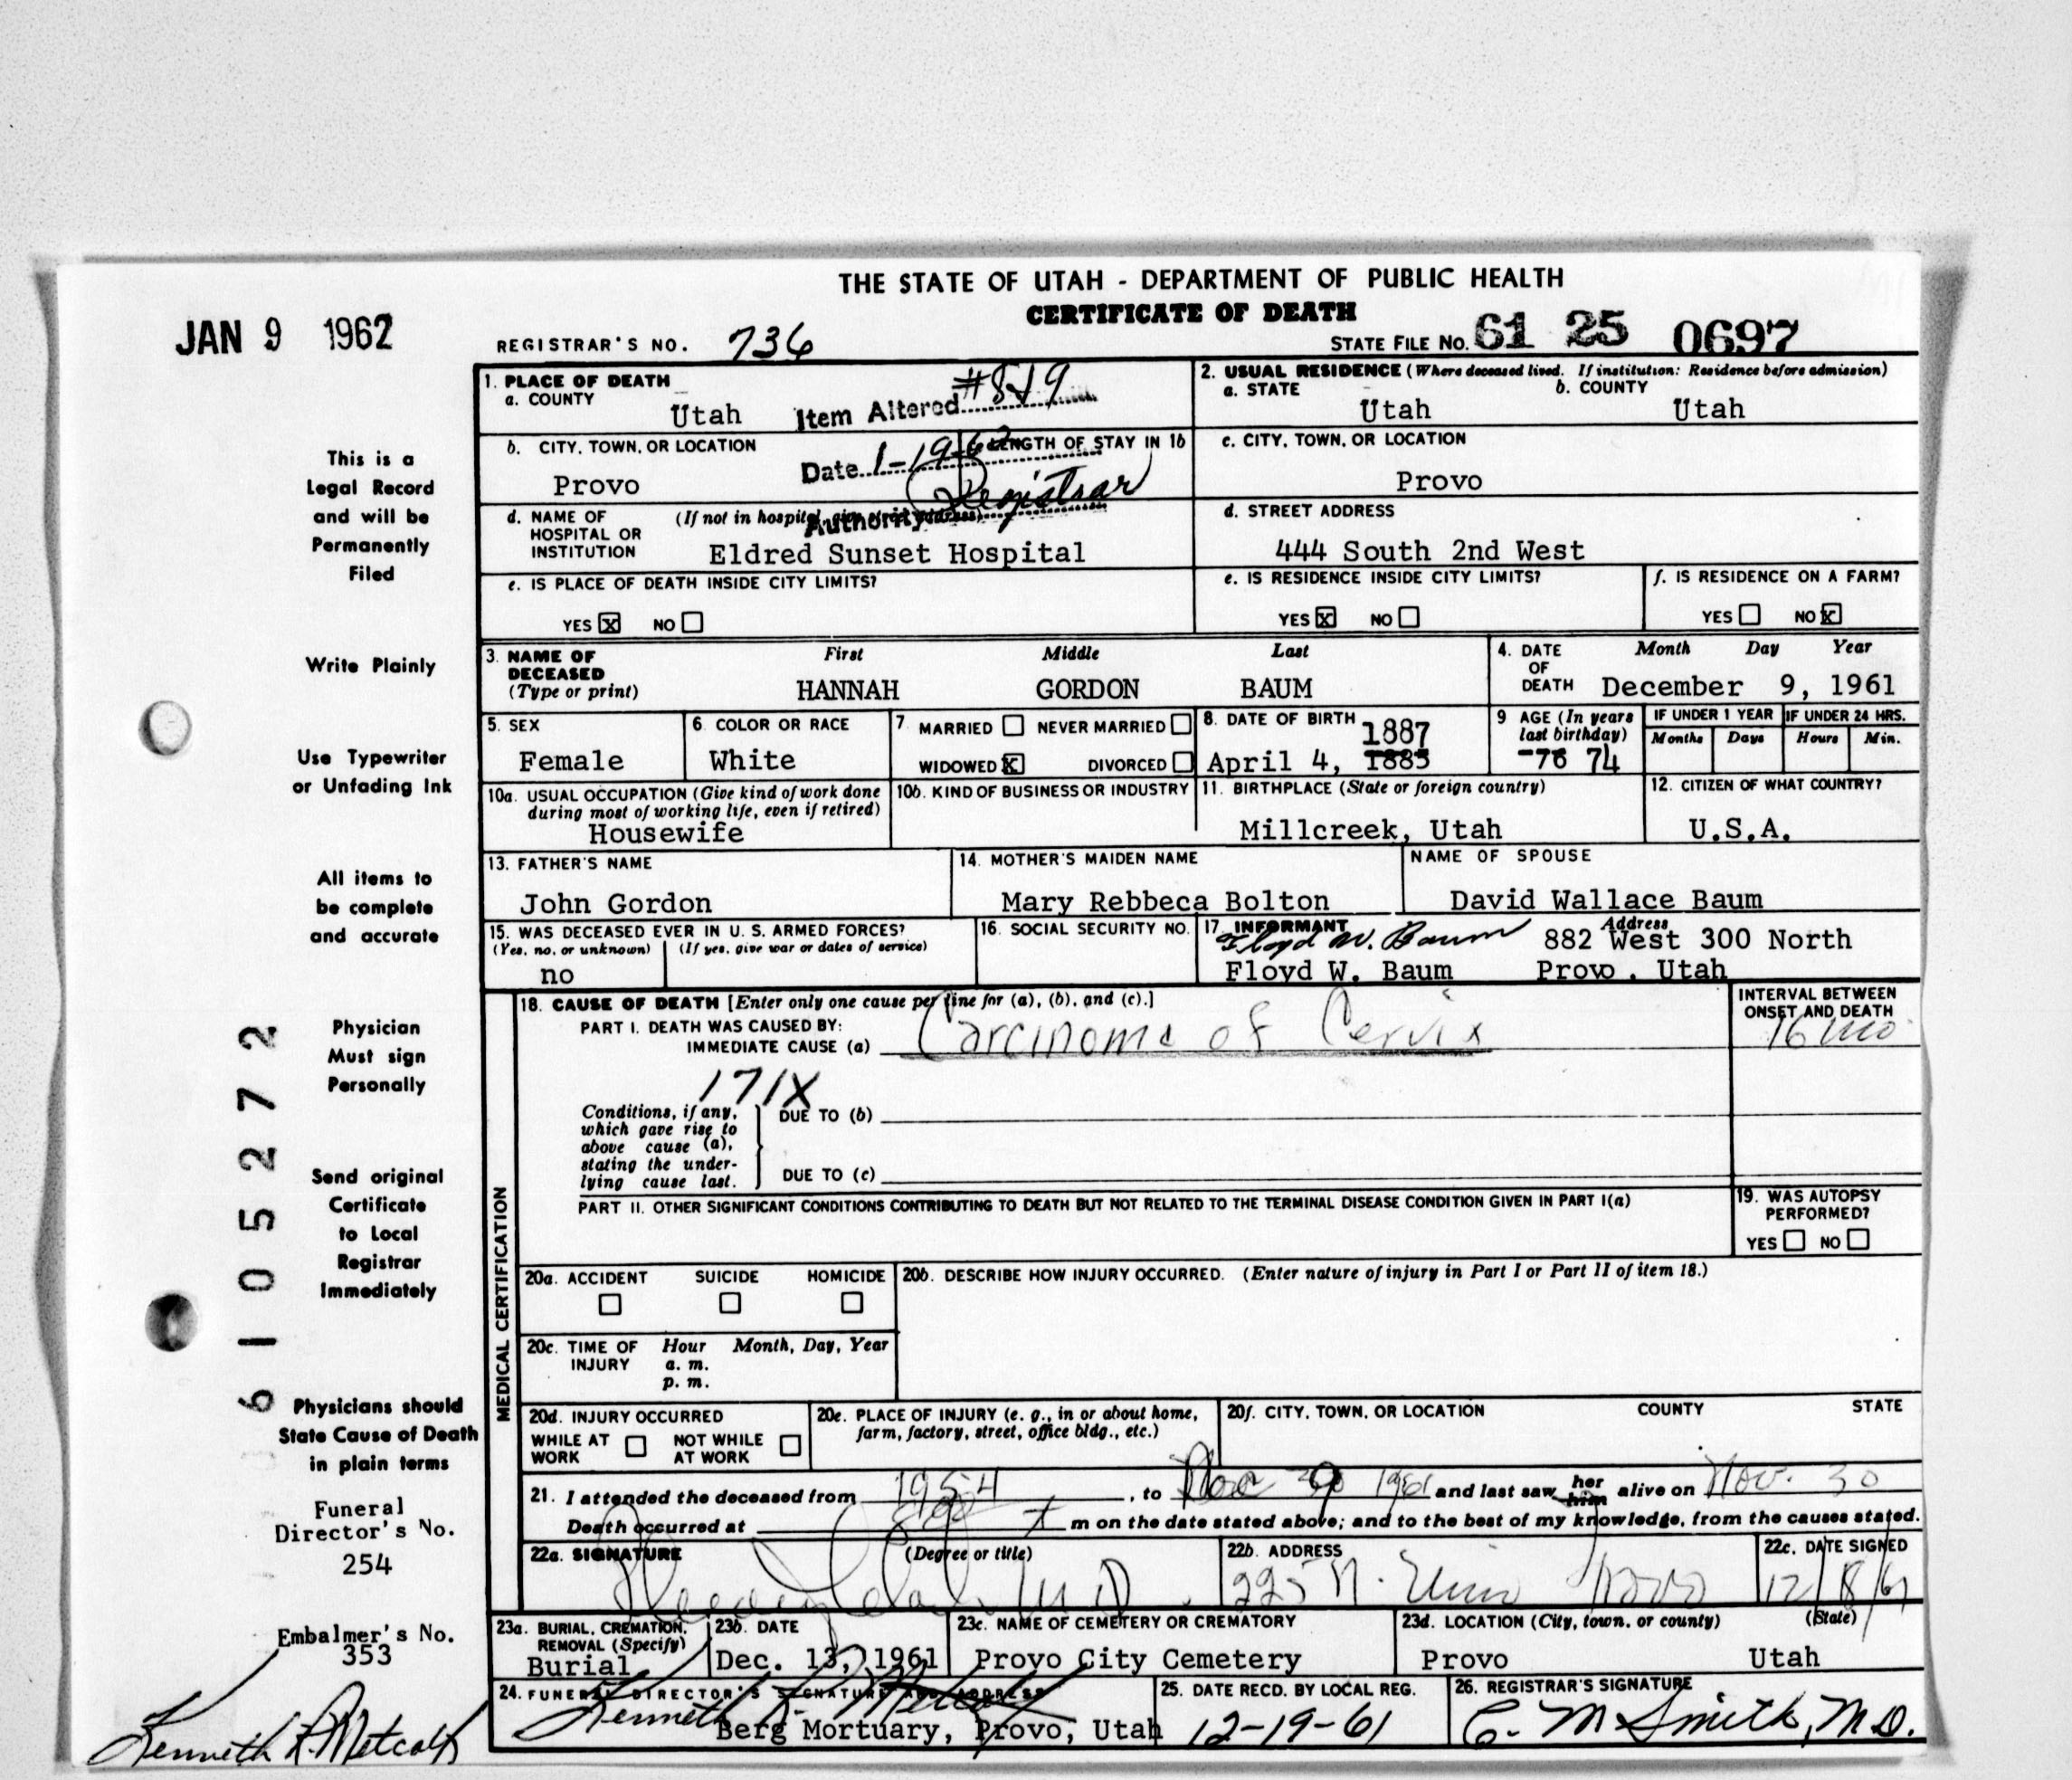 THE STATE OF UTAH - DEPARTMENT OF PUBLIC HEALTH
CERTIFICATE OF DEATH
JAN 9 1962
REGISTRAR'S NO. 736
STATE FILE No. 61 25 0697
1. PLACE OF DEATH
a. COUNTY
Utah
Item Altered #8+9
Date 1-19-62
Authority Registrar
2. USUAL RESIDENCE (Where deceased lived. If institution: Residence before admission)
a. STATE b. COUNTY
Utah Utah
b. CITY, TOWN, OR LOCATION LENGTH OF STAY IN 1b
Provo
c. CITY, TOWN, OR LOCATION
Provo
d. NAME OF HOSPITAL OR INSTITUTION (If not in hospital, give street address)
Eldred Sunset Hospital
d. STREET ADDRESS
444 South 2nd West
e. IS PLACE OF DEATH INSIDE CITY LIMITS?
YES X NO
e. IS RESIDENCE INSIDE CITY LIMITS?
YES X NO
f. IS RESIDENCE ON A FARM?
YES NO X
3. NAME OF DECEASED (Type or print) First Middle Last
HANNAH GORDON BAUM
4. DATE OF DEATH Month Day Year
December 9, 1961
5. SEX
Female
6. COLOR OR RACE
White
7. MARRIED NEVER MARRIED
WIDOWED X DIVORCED
8. DATE OF BIRTH 1887
April 4, 1885
9 AGE (In years last birthday)
76 74
IF UNDER 1 YEAR IF UNDER 24 HRS.
Months Days Hours Min.
10a. USUAL OCCUPATION (Give kind of work done during most of working life, even if retired)
Housewife
10b. KIND OF BUSINESS OR INDUSTRY
11. BIRTHPLACE (State or foreign country)
Millcreek, Utah
12. CITIZEN OF WHAT COUNTRY?
U.S.A.
13. FATHER'S NAME
John Gordon
14. MOTHER'S MAIDEN NAME
Mary Rebbeca Bolton
NAME OF SPOUSE
David Wallace Baum
15. WAS DECEASED EVER IN U. S. ARMED FORCES?
(Yes, no, or unknown) (If yes, give war or dates of service)
no
16. SOCIAL SECURITY NO.
17 INFORMANT Address
Floyd W. Baum 882 West 300 North
Floyd W. Baum Provo, Utah
18. CAUSE OF DEATH [Enter only one cause per line for (a), (b), and (c).]
PART I. DEATH WAS CAUSED BY:
IMMEDIATE CAUSE (a) Carcinoma of Cervix
INTERVAL BETWEEN ONSET AND DEATH
16 mo
171X
Conditions, if any, which gave rise to above cause (a), stating the underlying cause last.
DUE TO (b)
DUE TO (c)
PART II. OTHER SIGNIFICANT CONDITIONS CONTRIBUTING TO DEATH BUT NOT RELATED TO THE TERMINAL DISEASE CONDITION GIVEN IN PART I(a)
19. WAS AUTOPSY PERFORMED?
YES NO
MEDICAL CERTIFICATION
20a. ACCIDENT SUICIDE HOMICIDE
20b. DESCRIBE HOW INJURY OCCURRED. (Enter nature of injury in Part I or Part II of item 18.)
20c. TIME OF INJURY Hour Month, Day, Year
a. m.
p. m.
20d. INJURY OCCURRED
WHILE AT WORK NOT WHILE AT WORK
20e. PLACE OF INJURY (e. g., in or about home, farm, factory, street, office bldg., etc.)
20f. CITY, TOWN, OR LOCATION COUNTY STATE
21. I attended the deceased from 1954, to Dec 9 1961 and last saw her him alive on Nov. 30
Death occurred at m on the date stated above; and to the best of my knowledge, from the causes stated.
22a. SIGNATURE (Degree or title)
M D
22b. ADDRESS
225 N. Univ Provo
22c. DATE SIGNED
12/18/61
23a. BURIAL, CREMATION, REMOVAL (Specify)
Burial
23b. DATE
Dec. 13, 1961
23c. NAME OF CEMETERY OR CREMATORY
Provo City Cemetery
23d. LOCATION (City, town, or county) (State)
Provo Utah
24. FUNERAL DIRECTOR'S SIGNATURE AND ADDRESS
Berg Mortuary, Provo, Utah
25. DATE RECD. BY LOCAL REG.
12-19-61
26. REGISTRAR'S SIGNATURE
C. M Smith, M.D.
This is a
Legal Record
and will be
Permanently
Filed
Write Plainly
Use Typewriter
or Unfading Ink
All items to
be complete
and accurate
Physician
Must sign
Personally
Send original
Certificate
to Local
Registrar
Immediately
Physicians should
State Cause of Death
in plain terms
Funeral
Director's No.
254
Embalmer's No.
353
Kenneth R Metcalf
6105272